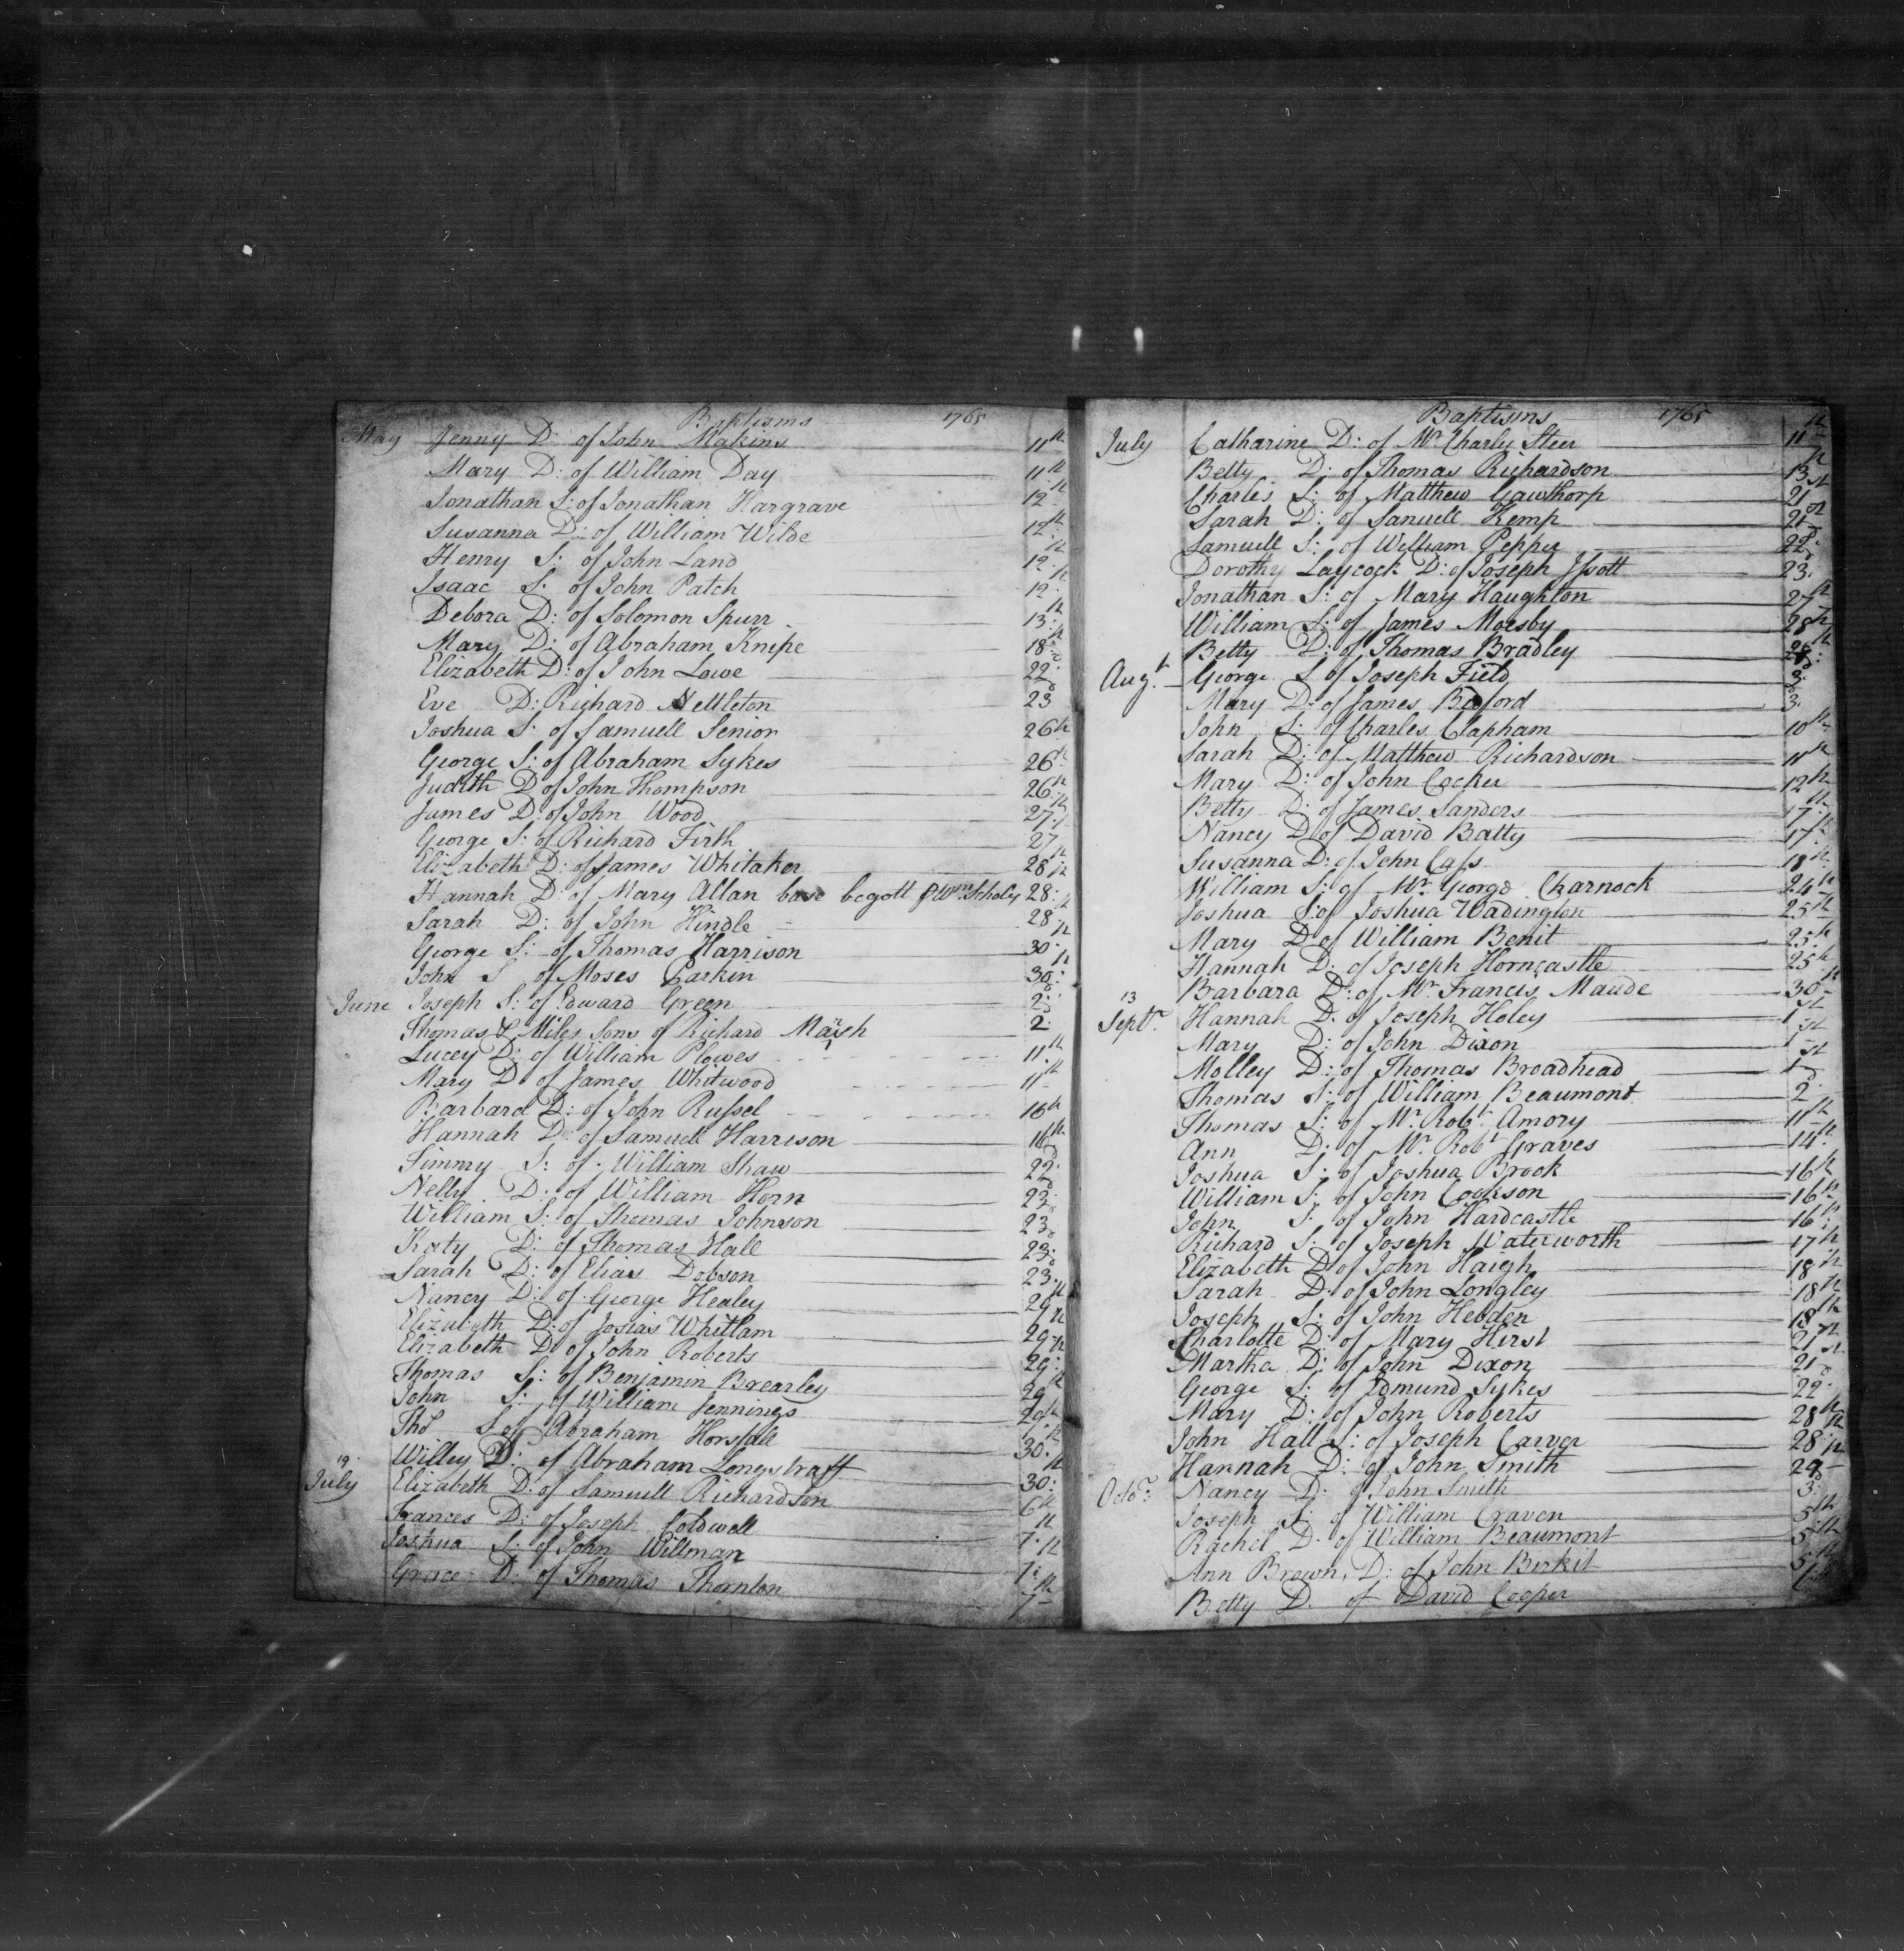 Baptisms 1765
May Jenny D: of John Makins 11th
Mary D: of William Day 11th
Jonathan S: of Jonathan Hargrave 12th
Susanna D: of William Wilde 12th
Henry S: of John Land 12th
Isaac S: of John Patch 12th
Debora D: of Solomon Spurr 13th
Mary D: of Abraham Knipe 18th
Elizabeth D: of John Lowe 22d
Eve D: Richard Nettleton 23d
Joshua S: of Samuell Senior 26th
George S: of Abraham Sykes 26th
Judith D of John Thompson 26th
James D: of John Wood 27th
George S: of Richard Firth 27th
Elizabeth D: of James Whitaker 28th
Hannah D: of Mary Allan base begott Wm Scholey 28th
Sarah D: of John Hindle 28th
George S: of Thomas Harrison 30th
John S of Moses Larkin 30th
June Joseph S: of Edward Green 2d
Thomas & Miles Sons of Richard Marsh 2d
Lucey D: of William Plowes 11th
Mary D of James Whitwood 11th
Barbara D: of John Russel 16th
Hannah D: of Samuell Harrison 16th
Timmy S: of William Shaw 22d
Nelly D: of William Horn 23d
William S: of Thomas Johnson 23d
Katy D: of Thomas Hall 23d
Sarah D: of Elias Dobson 23d
Nancy D: of George Healey 29th
Elizabeth D: of Josias Whitlam 29th
Elizabeth D: of John Roberts 29th
Thomas S: of Benjamin Brearley 29th
John S: of William Jennings 29th
Thos S of Abraham Horsfall 30th
Willey D: of Abraham Longstraff 30th
19
July Elizabeth D: of Samuell Richardson 6th
Frances D: of Joseph Coldwell 7th
Joshua S: of John Willman 7th
Grace D: of Thomas Thornton 7th
Baptisms 1765
July Catharine D: of Mr Charles Steer 11th
Betty D: of Thomas Richardson 13th
Charles S: of Matthew Gawthorp 21st
Sarah D: of Samuell Kemp 21st
Samuell S: of William Pepper 22d
Dorothy Laycock D: of Joseph Issott 23d
Jonathan S: of Mary Haughton 27th
William S: of James Moesby 28th
Betty D: of Thomas Bradley 28th
Augt George S of Joseph Field 3d
Mary D: of James Bedford 3d
John S: of Charles Clapham 10th
Sarah D: of Matthew Richardson 11th
Mary D: of John Cocker 12th
Betty D: of James Sanders 17th
Nancy D of David Batty 17th
Susanna D: of John Cass 18th
William S: of Mr George Charnock 24th
Joshua S: of Joshua Wadington 25th
Mary D of William Benit 25th
Hannah D: of Joseph Horncastle 25th
Barbara D: of Mr Francis Maude 30th
13
Septr Hannah D. of Joseph Holey 1st
Mary D: of John Dixon 1st
Molley D: of Thomas Broadhead 1st
Thomas S: of William Beaumont 2d
Thomas S: of Mr Robt Amory 11th
Ann D: of Mr Robt Graves 14th
Joshua S: of Joshua Brook 16th
William S: of John Cookson 16th
John S: of John Hardcastle 16th
Richard S: of Joseph Waterworth 17th
Elizabeth D of John Haigh 18th
Sarah D: of John Longley 18th
Joseph S: of John Hebden 18th
Charlotte D: of Mary Hirst 21st
Martha D: of John Dixon 21st
George S: of Edmund Sykes 22d
Mary D: of John Roberts 28th
John Hall S: of Joseph Carver 28th
Hannah D: of John Smith 29th
Octor Nancy D: of John Smith 3d
Joseph S: of William Craven 5th
Rachel D: of William Beaumont 5th
Ann Brown, D: of John Birkit 5th
Betty D. of David Cooper